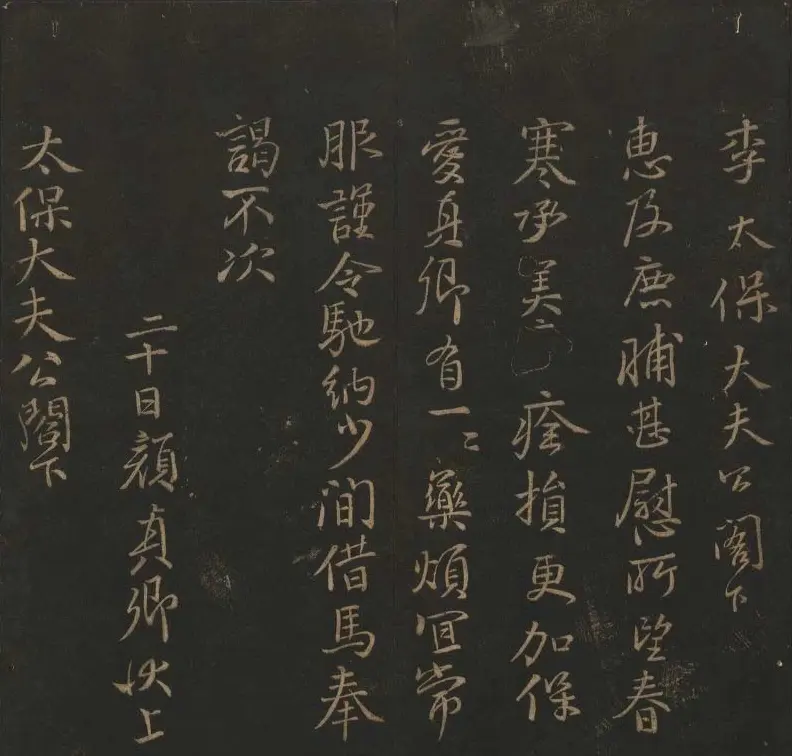 李太保大夫公阁下
惠及鹿脯甚慰所望春
寒承美〻痊損更加保
愛真卿有一〻藥煩宜常
服謹令馳納少間借馬奉
謁不次
二十日顏真卿狀上
太保大夫公閣下